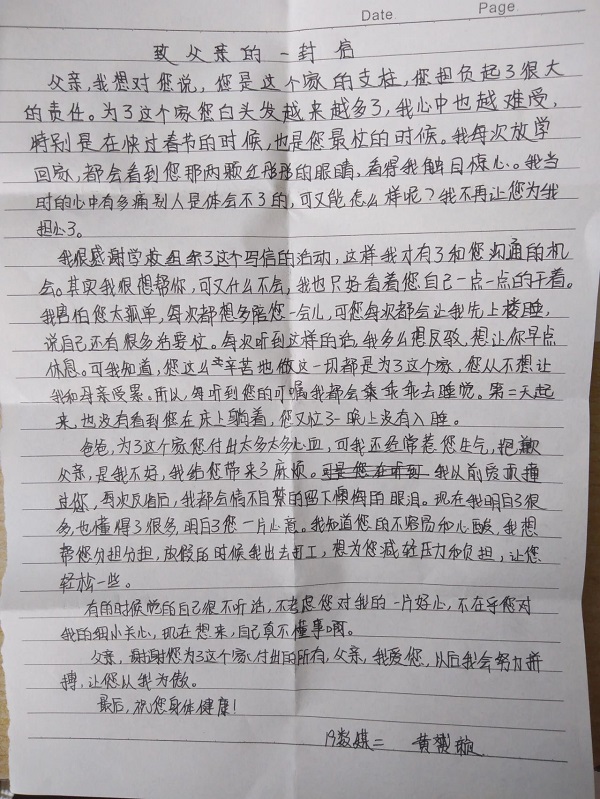 Date
Page
致父亲的一封信
父亲,我想对您说,您是这个家的支柱,您担负起了很大
的责任。为了这个家您白头发越来越多了,我心中也越难受,
特别是在快过春节的时候,也是您最忙的时候。我每次放学
回家,都会看到您那两颗红彤彤的眼睛,看得我触目惊心。我当
时的心中有多痛别人是体会不了的,可又能怎么样呢?我不再让您为我
担心了。
我很感谢学校组织了这个写信的活动,这样我才有了和您沟通的机
会。其实我很想帮你,可又什么不会,我也只好看着您自己一点一点的干着。
我害怕您太孤单,每次都想多陪您一会儿,可您每次都会让我先上楼睡,
说自己还有很多活要忙。每次听到这样的话,我多么想反驳,想让你早点
休息。可我知道,您这么辛苦地做这一切都是为了这个家,您从不想让
我和母亲受累。所以,每听到您的叮嘱我都会乖乖乖去睡觉。第二天起
来,也没有看到您在床上躺着,您又忙了一晚上没有入睡。
爸爸,为了这个家您付出太多太多心血,可我还经常惹您生气,抱歉
父亲,是我不好,我给您带来了麻烦。我以前爱顶撞
过您,每次反省后,我都会情不自禁的留下懊悔的眼泪。现在我明白了很
多,也懂得了很多,明白了您一片心意。我知道您的不容易和心酸,我想
帮您分担分担,放假的时候我出去打工,想为您减轻压力和负担,让您
轻松一些。
有的时候觉的自己很不听话,不考虑您对我的一片好心,不在乎您对
我的细小关心,现在想来,自己真不懂事啊。
父亲,谢谢您为了这个家付出的所有,父亲,我爱您,以后我会努力拼
搏,让您从我为傲。
最后,祝您身体健康!
19数媒二 黄